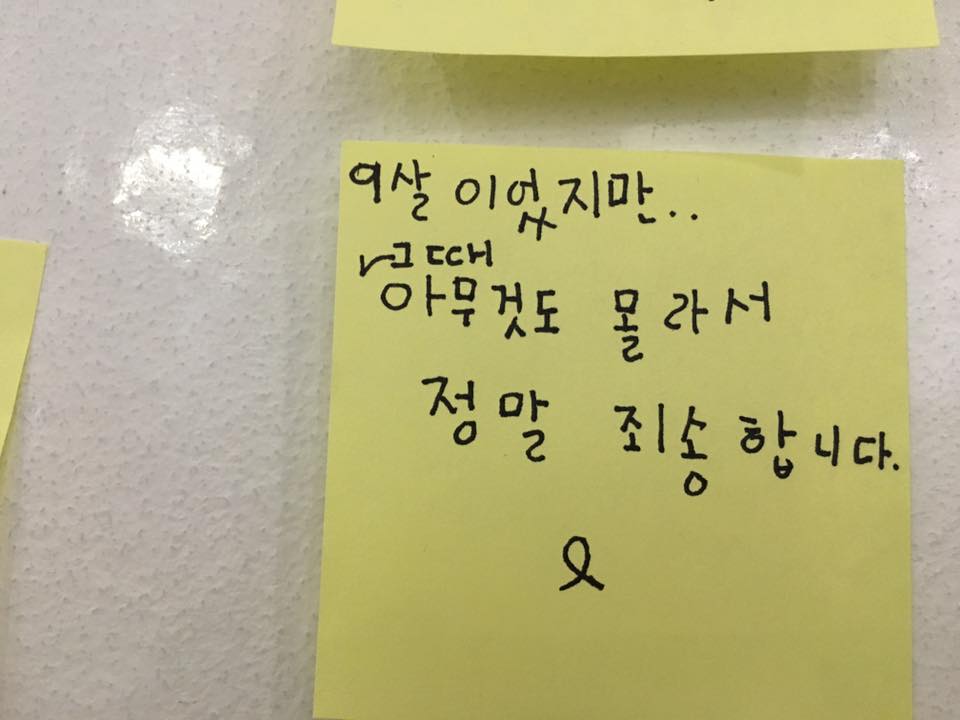 9살 이었지만..
그때
아무것도 몰라서
정말 죄송합니다.